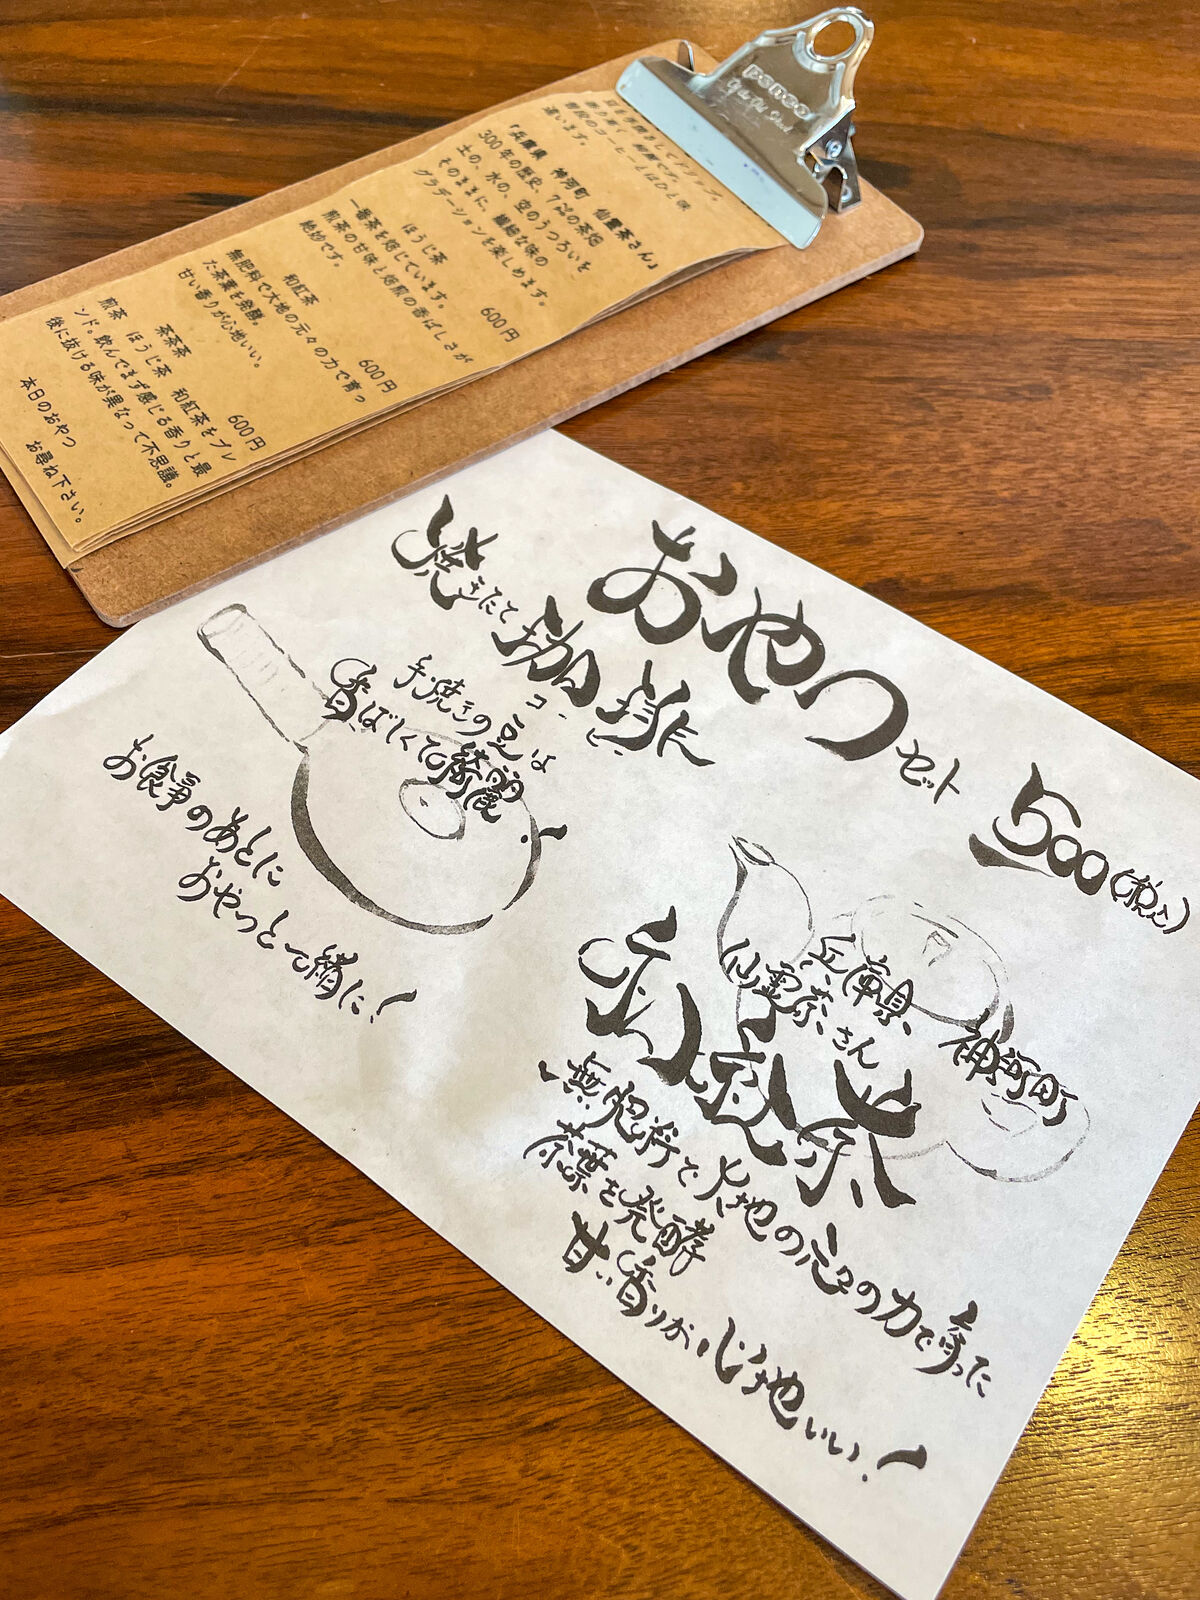 penco
豆を手挽きしてドリップ。
香り高く 綺麗です。
普段のコーヒーとはひと味
違います。
「兵庫県 神河町 仙霊茶さん」
300年の歴史、7㌶の茶畑
土の、水の、空のうつろいを
そのままに、繊細な味の
グラデーションを楽しめます。
ほうじ茶 600円
一番茶を焙じています。
煎茶の甘味と焙煎の香ばしさが
絶妙です。
和紅茶 600円
無肥料で大地の元々の力で育っ
た茶葉を発酵。
甘い香りが心地いい。
茶茶茶 600円
煎茶 ほうじ茶 和紅茶をブレ
ンド。飲んでまず感じる香りと最
後に抜ける味が異なって不思議。
本日のおやつ
お尋ね下さい。
おやつセット 500(税込)
焼きたて珈琲
コーヒー
手焼きの豆は
香ばしくて綺麗!
お食事のあとに
おやつと一緒に!
兵庫県 神河町
仙霊茶さん
和紅茶
無肥料で大地の元々の力で育った
茶葉を発酵
甘い香りが心地いい!